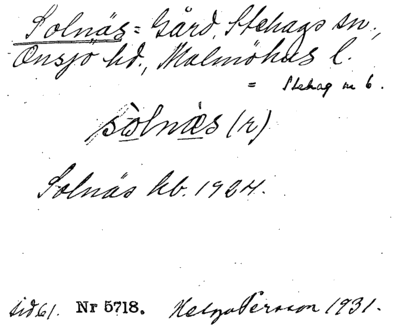 Solnäs = Gård, Stehags sn.,
Onsjö hd., Malmöhus l.
= Stehag nr 6.
sòlnæ̀s (r)
Solnäs kb. 1924.
sid 61. Nr 5718. Helga Persson 1931.